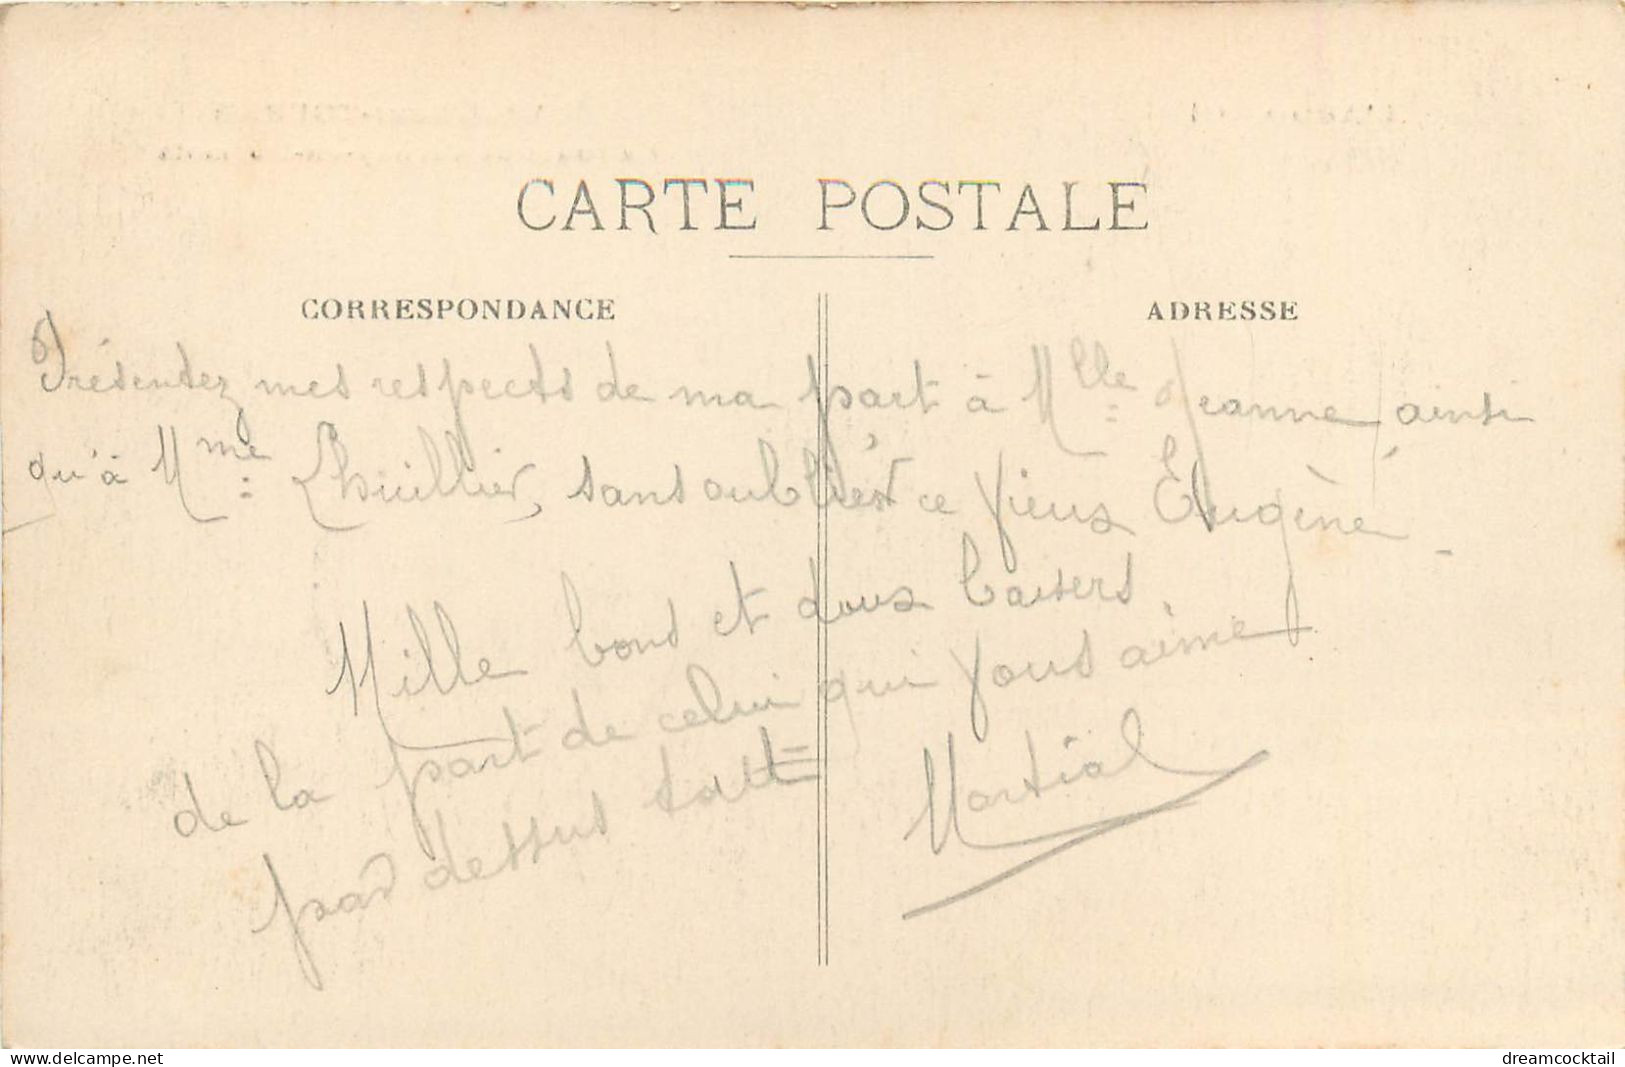 CARTE POSTALE
CORRESPONDANCE
ADRESSE
Présentez mes respects de ma part à Mlle Jeanne, ainsi
qu'à Mme Lhuillier, sans oublier ce vieux Eugène.
Mille bons et doux baisers
de la part de celui qui vous aime
par dessus tout =
Martial
www.delcampe.net
dreamcocktail